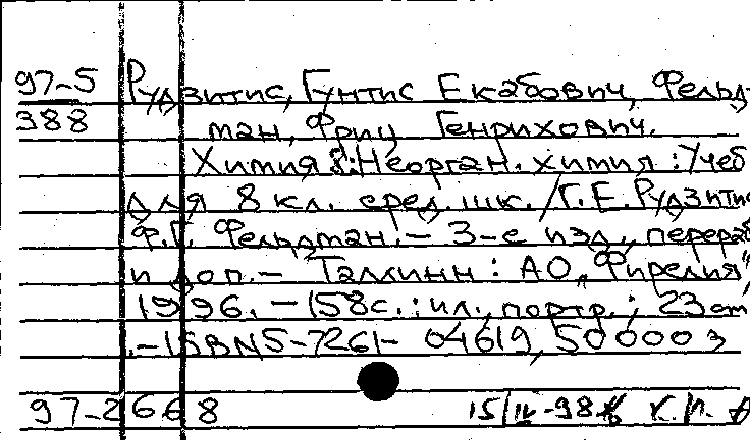 97-5 Рудзитис, Гунтис Екабович, Фельд-
388 ман, Фриц Генрихович.
Химия 8: Неорган. химия : Учеб
для 8 кл. сред. шк. /Г. Е. Рудзитис
Ф.Г. Фельдман. – 3-е изд., перераб
и доп. – Таллинн : АО „Фирелия",
1996. – 158 с. : ил., портр. ; 23 cm
. – ISBN 5-7261- 04619, 50000 э
97-2668 15/IV-98